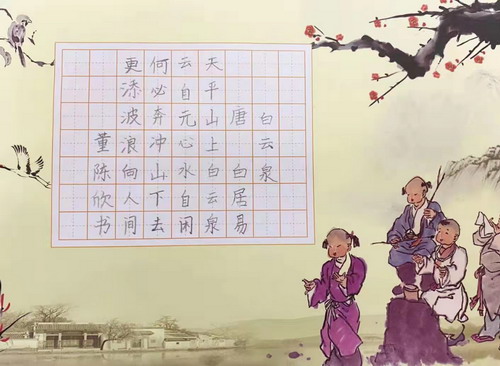 白云泉
唐 白居易
天平山上白云泉
云自无心水自闲
何必奔冲山下去
更添波浪向人间
董陈欣书